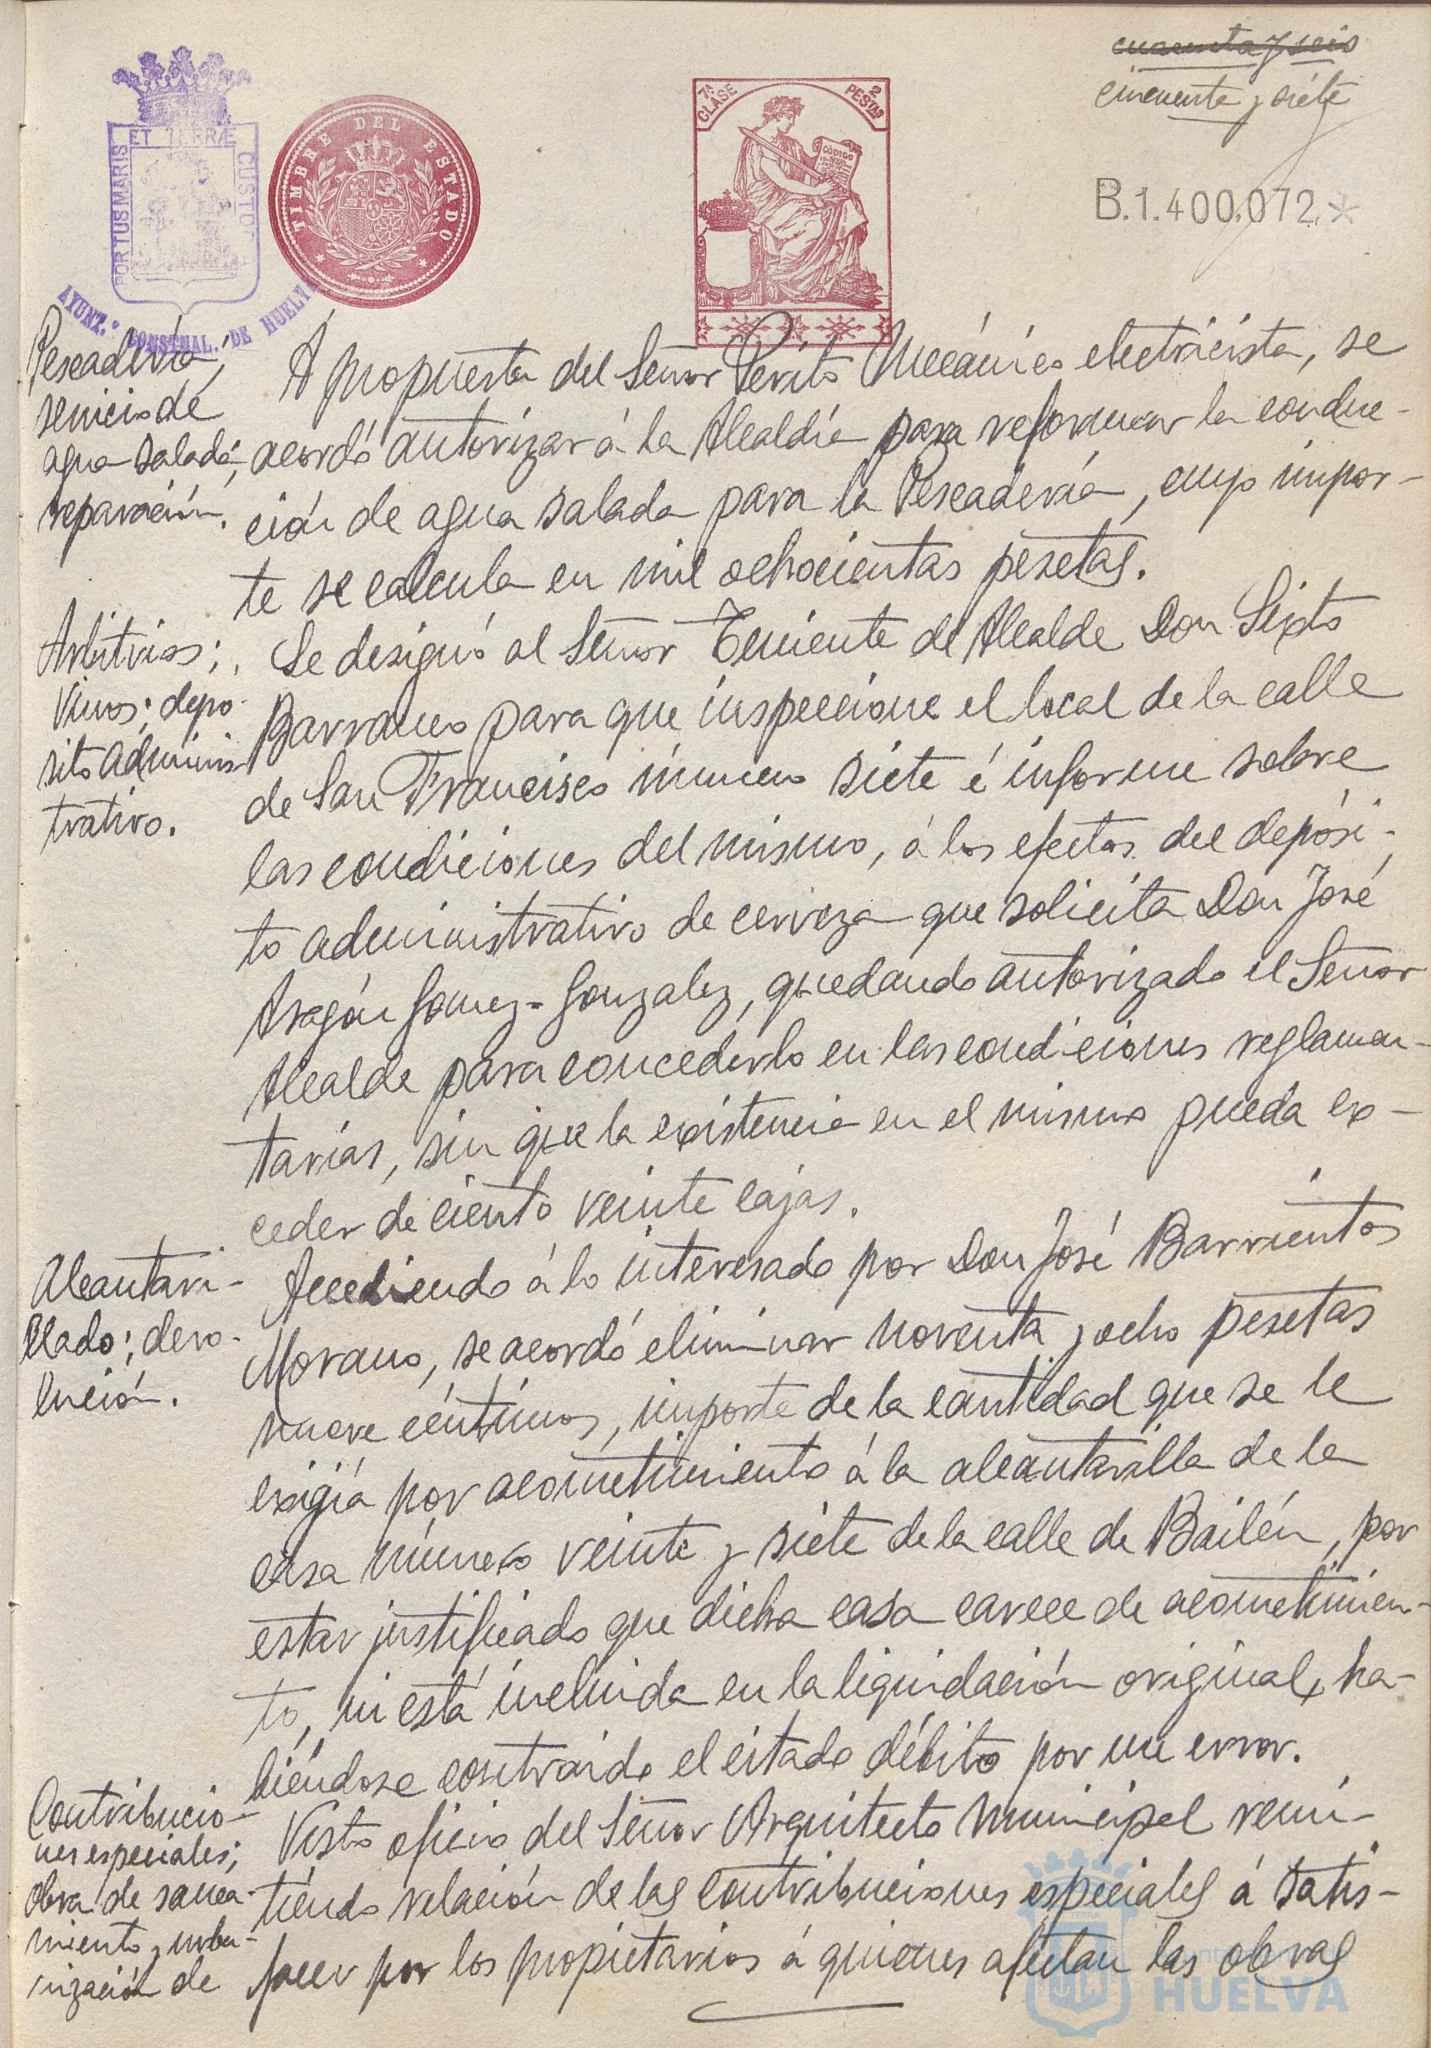 cuarenta y seis
cincuenta y siete
B.1.400.072*
PORTUS MARIS ET TERRÆ CUSTO
AYUNT.º CONSTNAL. DE HUELV
TIMBRE DEL ESTADO
7ª CLASE
2 PESTAS
CÓDIGO
Pescadería,
servicio de
agua salada,
reparación.
A propuesta del Señor Perito Mecánico electricista, se
acordó autorizar á la Alcaldía para reformar la conduc-
ción de agua salada para la Pescadería, cuyo impor-
te se calcula en mil ochocientas pesetas.
Arbitrios;
Vinos; depó-
sito adminis
trativo.
Se designó al Señor Teniente de Alcalde Don Sixto
Barranco para que inspeccione el local de la calle
de San Francisco número siete é informe sobre
las condiciones del mismo, á los efectos del depósi-
to administrativo de cerveza que solicita Don José
Aragón Gomez-Gonzalez, quedando autorizado el Señor
Alcalde para concederlo en las condiciones reglamen-
tarias, sin que la existencia en el mismo pueda ex-
ceder de ciento veinte cajas.
Alcantari-
llado; devo-
lución.
Accediendo á lo interesado por Don José Barrientos
Morano, se acordó eliminar noventa y ocho pesetas
nueve céntimos, importe de la cantidad que se le
exigía por acometimiento á la alcantarilla de la
casa número veinte y siete de la calle de Bailén, por
estar justificado que dicha casa carece de acometimien-
to, ni está incluida en la liquidación original, ha-
biéndose contraido el citado débito por un error.
Contribucio-
nes especiales;
obra de sanea-
miento y urba-
nización de
Visto oficio del Señor Arquitecto Municipal remi-
tiendo relación de las contribuciones especiales á satis-
facer por los propietarios á quienes afectan las obras
HUELVA